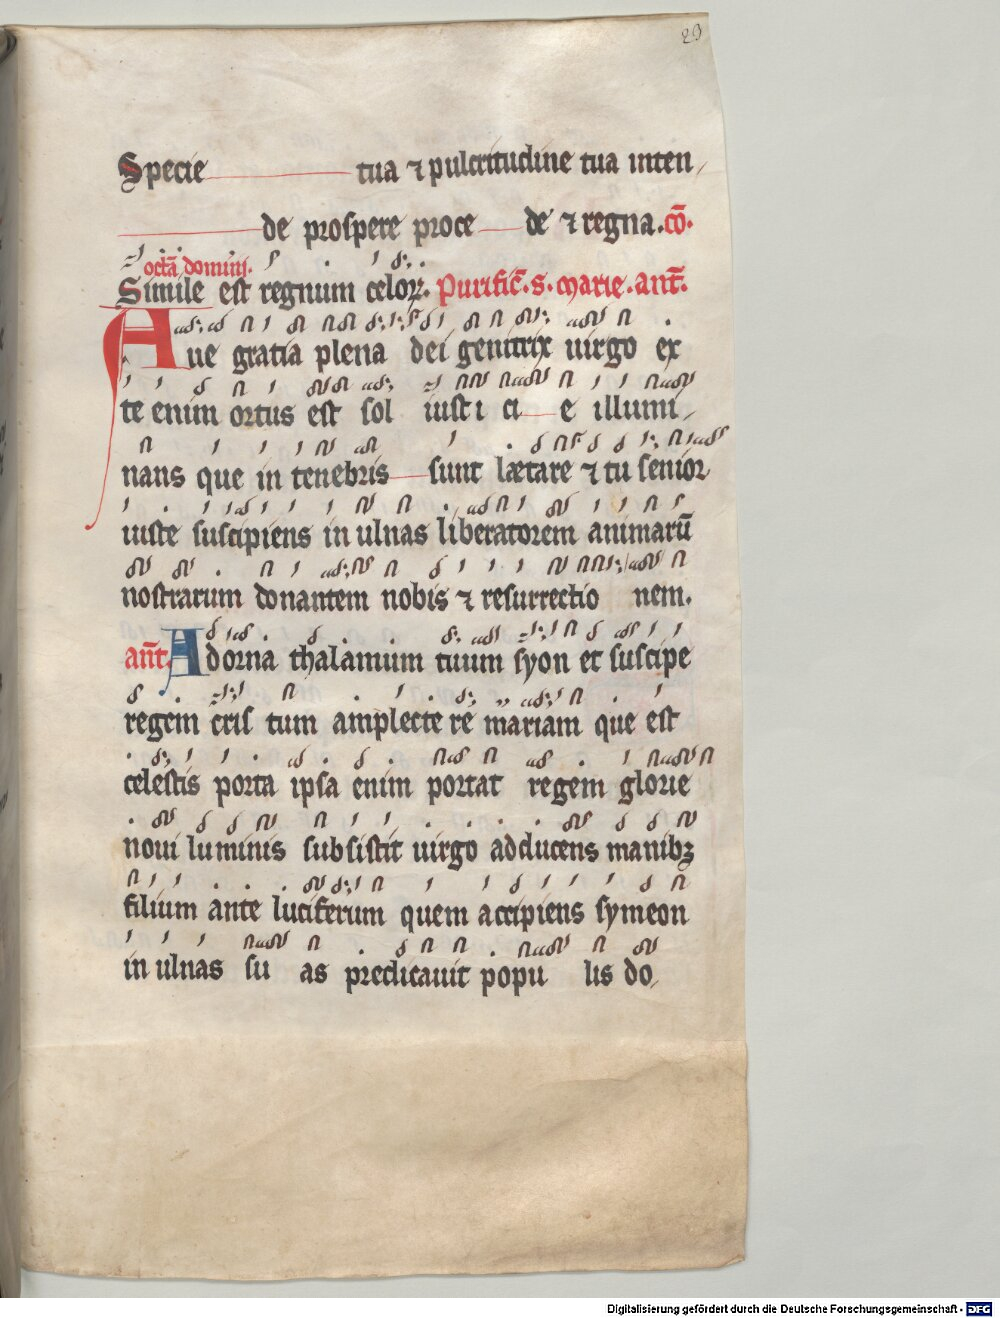 29
Specie tua ⁊ pulcritudine tua inten
de prospere proce de ⁊ regna. cō.
octā domini.
Simile est regnum celoꝝ. Purific̄. s. marie. ant̄.
Aue gratia plena dei genitrix uirgo ex
te enim ortus est sol iusti ci e illumi
nans que in tenebris sunt lætare ⁊ tu senior
iuste suscipiens in ulnas liberatorem animarū
nostrarum donantem nobis ⁊ resurrectio nem.
ant̄ Adorna thalamum tuum syon et suscipe
regem cris tum amplecte re mariam que est
celestis porta ipsa enim portat regem glorie
noui luminis subsistit uirgo adducens manibꝫ
filium ante luciferum quem accipiens symeon
in ulnas su as predicauit popu lis do
Digitalisierung gefördert durch die Deutsche Forschungsgemeinschaft - DFG